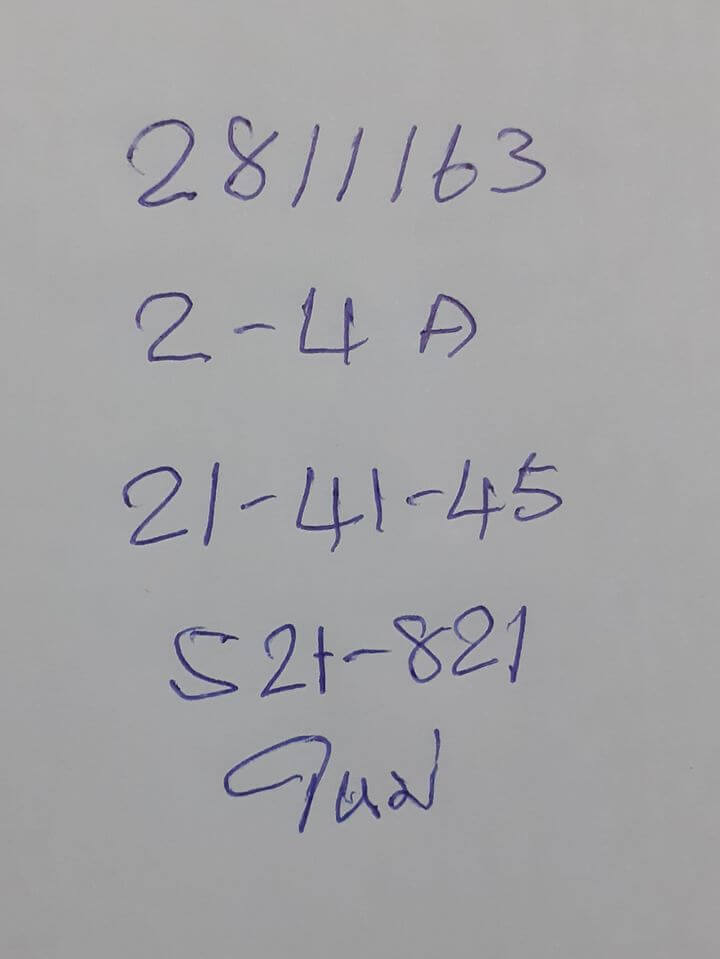 28/11/63
2-4 A
21-41-45
521-821
ใหม่